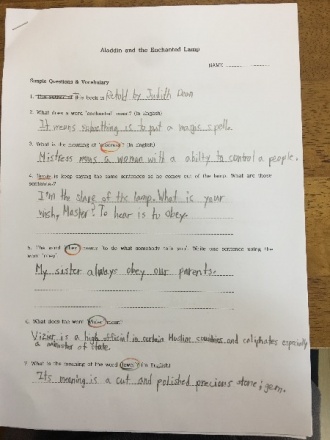 Aladdin and the Enchanted Lamp
NAME:
Simple Questions & Vocabulary
1. The author of the book is Retold by Judith Dean
2. What does a word 'enchanted' mean? (In English)
It means something is to put a magic spell.
3. What is the meaning of 'mistress'? (In English)
Mistress means a woman with a abilty to control a people.
4. Genie is keep saying the same sentences as he comes out of the lamp. What are those
sentences?
I'm the slave of the lamp. What is your
wish, Master? To hear is to obey.
5. The word 'obey' means: To do what somebody tells you. Write one sentence using the
word 'obey'
My sister always obey our parents.
6. What does the word 'Vizier' mean?
Vizier is a high official in certain Muslim countries and caliphates especially
a minister of State.
7. What is the meaning of the word (In English)
Its meaning is a cut and polished precious stone; gem.